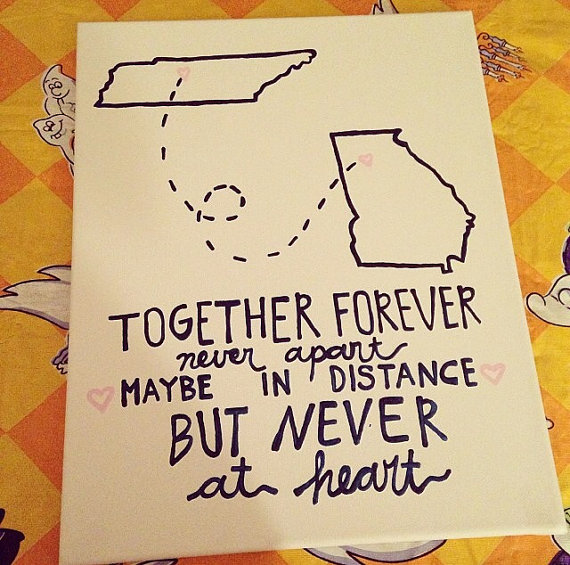 TOGETHER FOREVER
never apart
MAYBE IN DISTANCE
BUT NEVER
at heart